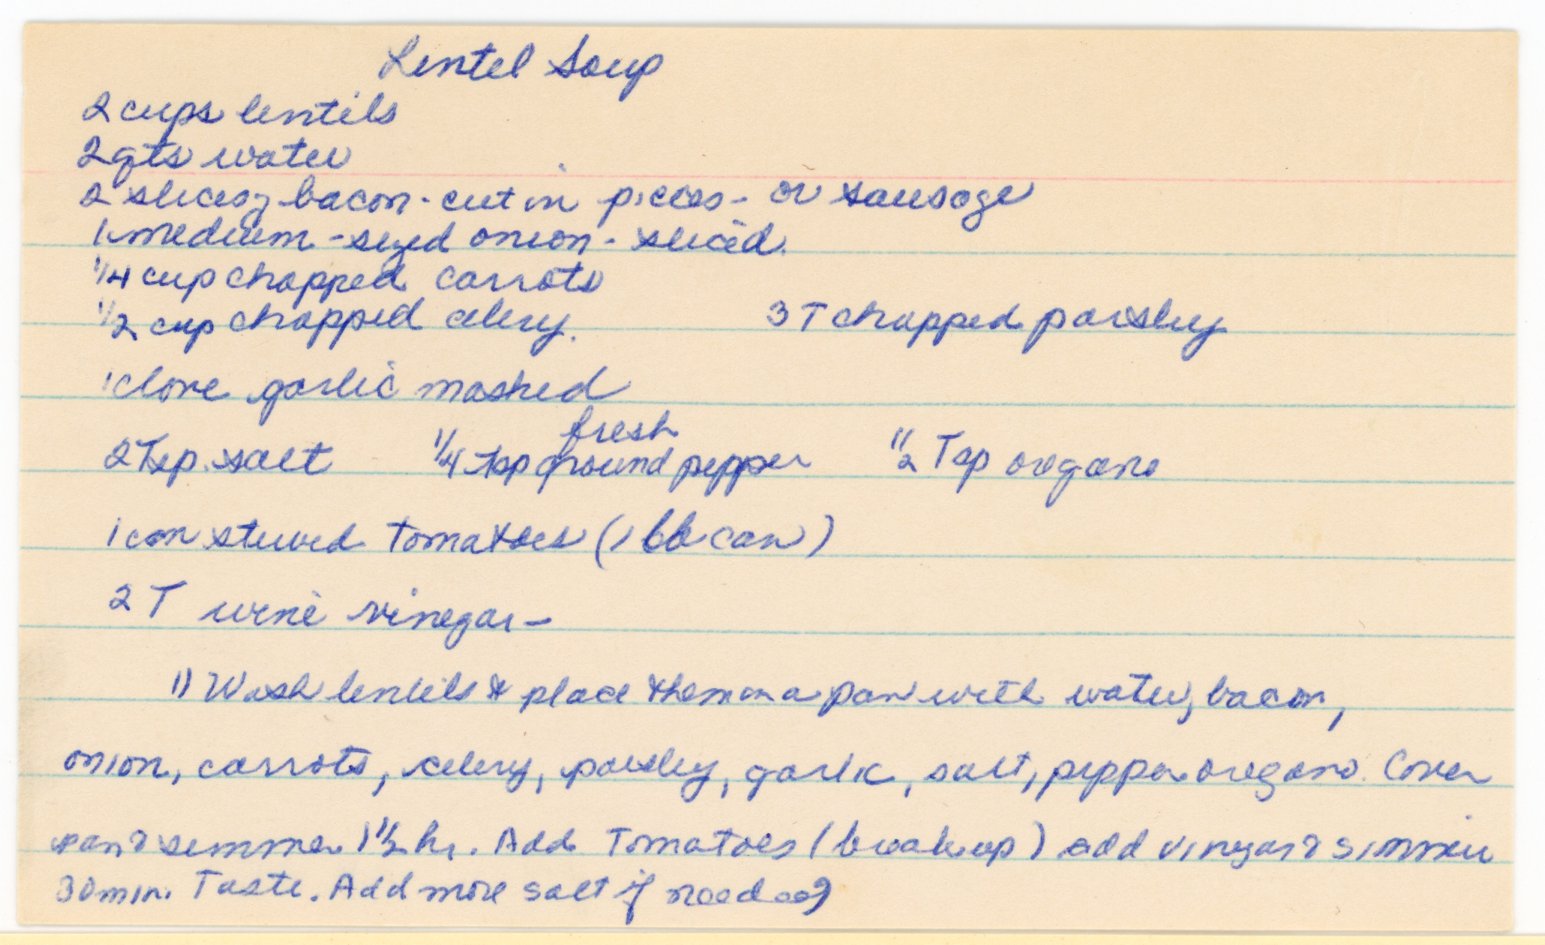 Lentel Soup
2 cups lentils
2 qts water
2 slices bacon - cut in pieces - or sausage
1 medium-sized onion - sliced.
1/4 cup chopped carrots
1/2 cup chopped celery. 3 T chopped parsley
1 clove garlic mashed
fresh
2 Tsp. salt 1/4 tsp ground pepper 1/2 Tsp oregano
1 can stewed tomatoes (1 lb can)
2 T wine vinegar -
1) Wash lentils & place them in a pan with water, bacon,
onion, carrots, celery, parsley, garlic, salt, pepper oregano. Cover
pan & simmer 1 1/2 hr. Add Tomatoes (break up) add vinegar & simmer
30 min. Taste. Add more salt if needed